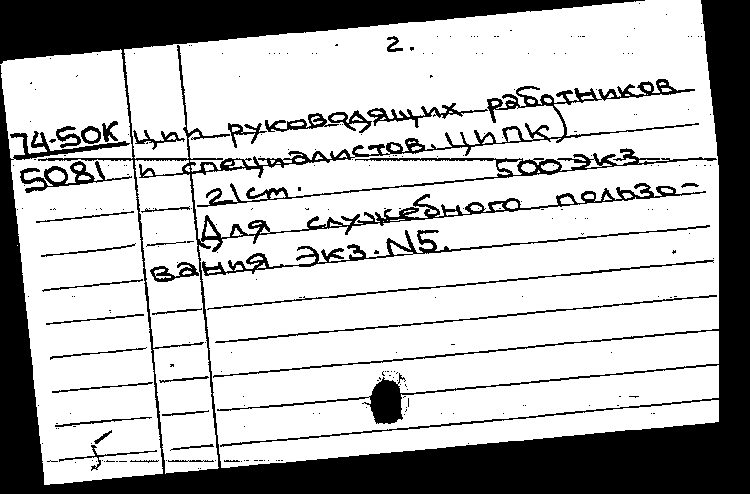 2.
74-50К ции руководящих работников
5081 и специалистов. ЦИПК)
21 ст. 500 экз.
Для служебного пользо-
вания. Экз. N5.